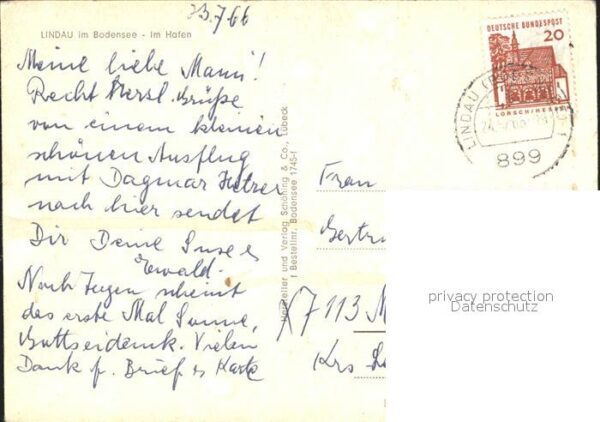 23.7.66
LINDAU im Bodensee - Im Hafen
Meine liebe Mami!
Recht herzl. Grüße
von einem kleinen
schönen Ausflug
mit Dagmar
nach hier sendet
Dir Deine
Ewald.
Nach Regen scheint
das erste Mal Sonne,
Gottseidank. Vielen
Dank f. Brief u. Karte
Hersteller und Verlag Schöning & Co., Lübeck
Bestellnr. Bodensee 1745-f
DEUTSCHE BUNDESPOST
20
LORSCH/HESSEN
LINDAU
899
Frau
Gertru
7113
Krs
privacy protection
Datenschutz